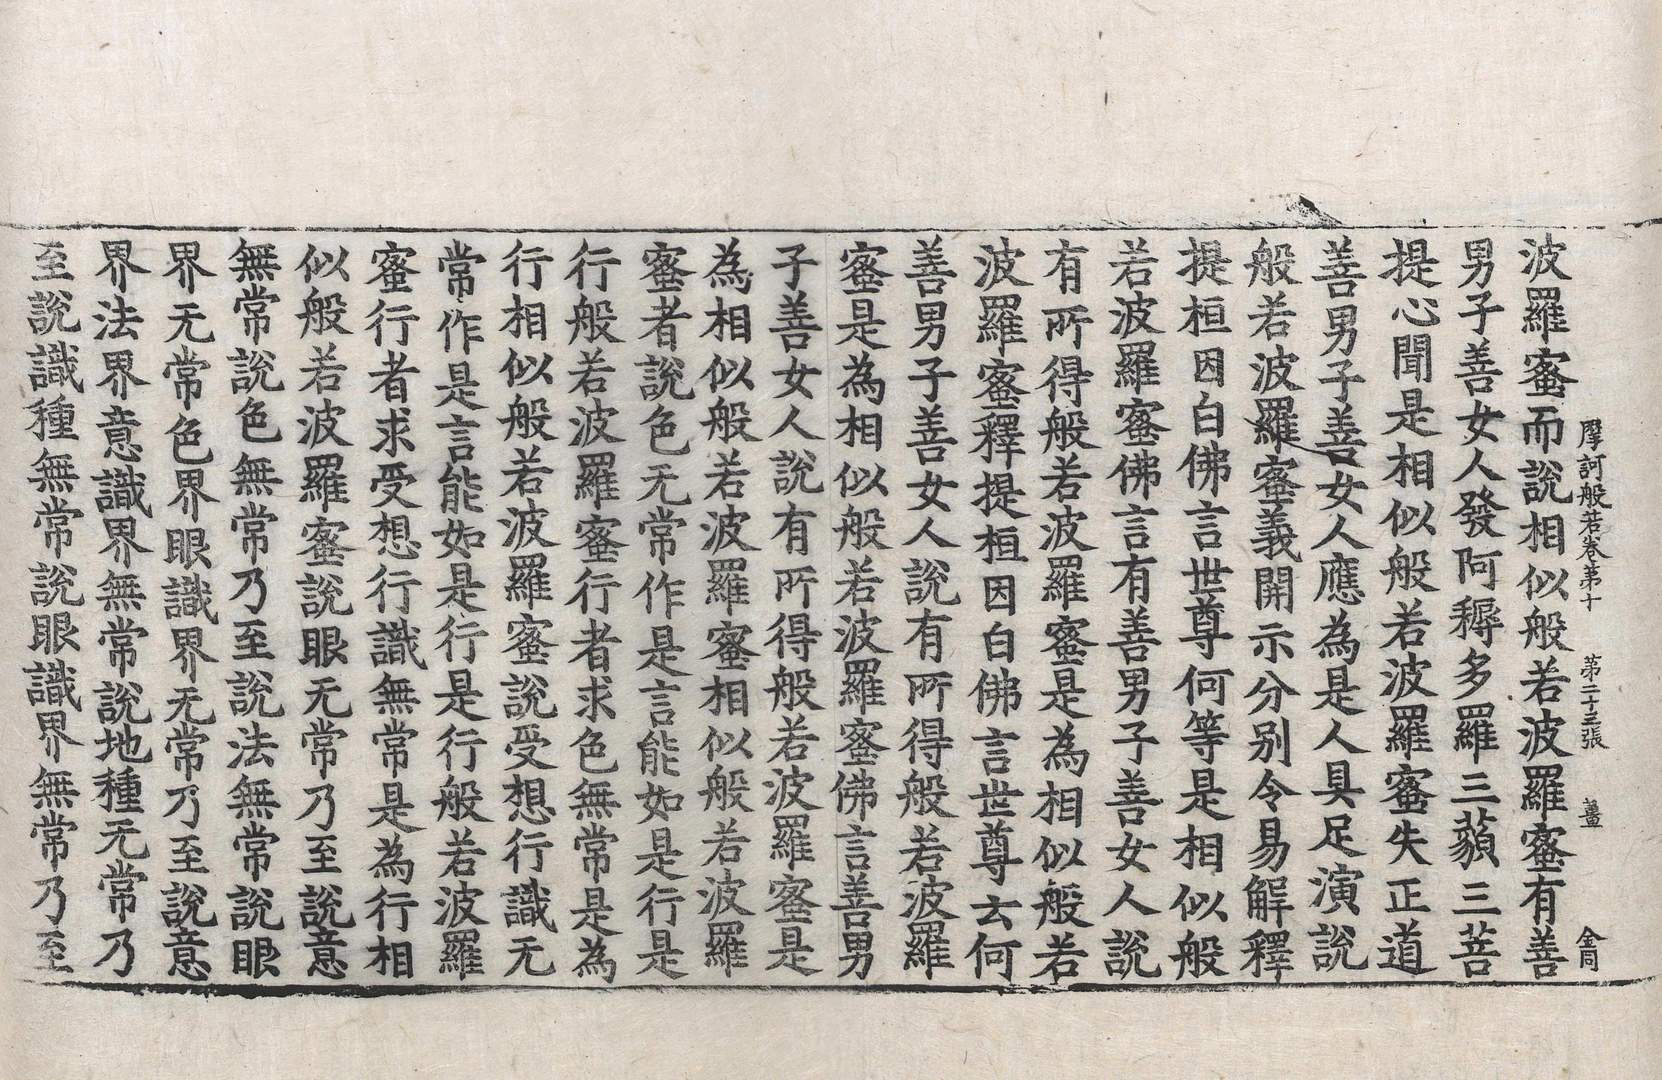 摩訶般若卷第十　第二十三張　薑　金同
波羅蜜而說相似般若波羅蜜有善
男子善女人發阿耨多羅三藐三菩
提心聞是相似般若波羅蜜失正道
善男子善女人應為是人具足演說
般若波羅蜜義開示分別令易解釋
提桓因白佛言世尊何等是相似般
若波羅蜜佛言有善男子善女人說
有所得般若波羅蜜是為相似般若
波羅蜜釋提桓因白佛言世尊云何
善男子善女人說有所得般若波羅
蜜是為相似般若波羅蜜佛言善男
子善女人說有所得般若波羅蜜是
為相似般若波羅蜜相似般若波羅
蜜者說色无常作是言能如是行是
行般若波羅蜜行者求色無常是為
行相似般若波羅蜜說受想行識无
常作是言能如是行是行般若波羅
蜜行者求受想行識無常是為行相
似般若波羅蜜說眼无常乃至說意
無常說色無常乃至說法無常說眼
界无常色界眼識界无常乃至說意
界法界意識界無常說地種无常乃
至說識種無常說眼識界無常乃至